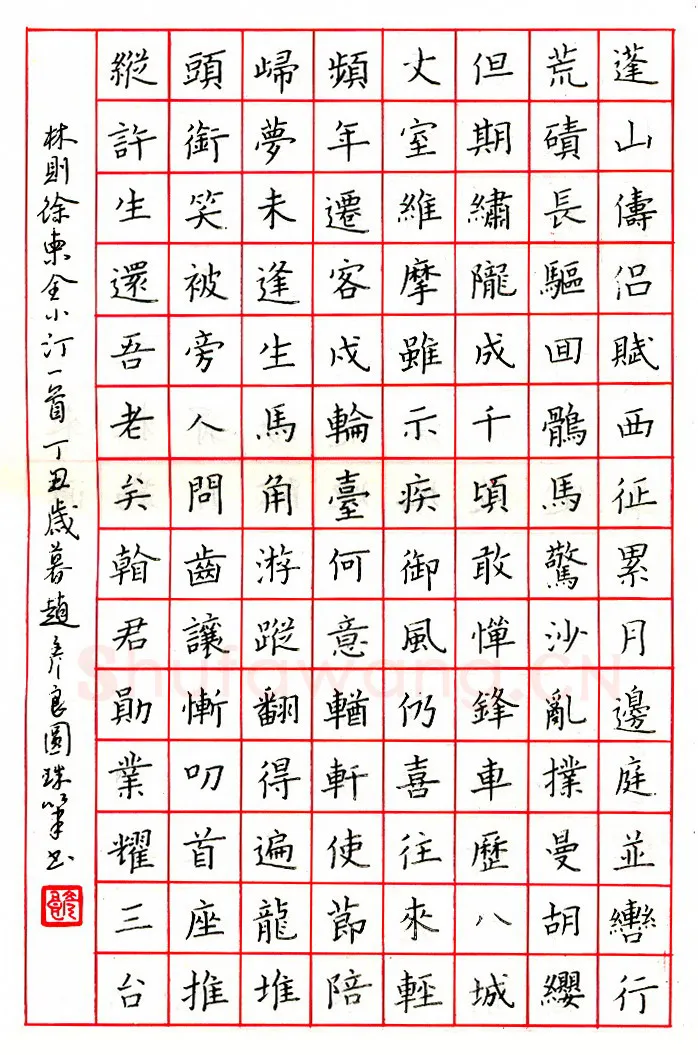 蓬山儔侣賦西征累月邊庭並轡行
荒磧長驅囬鶻馬驚沙亂撲曼胡纓
但期繡隴成千頃敢憚鋒車歷八城
丈室維摩雖示疾御風仍喜往來輕
頻年遷客戍輪臺何意輶軒使節陪
歸夢未逢生馬角游蹤翻得遍龍堆
頭銜笑被旁人問齒讓慚叨首座推
縱許生還吾老矣翰君勛業耀三台
林則徐柬全小汀一首丁丑歲暮趙彥良圓珠筆书
Shufawang.CN